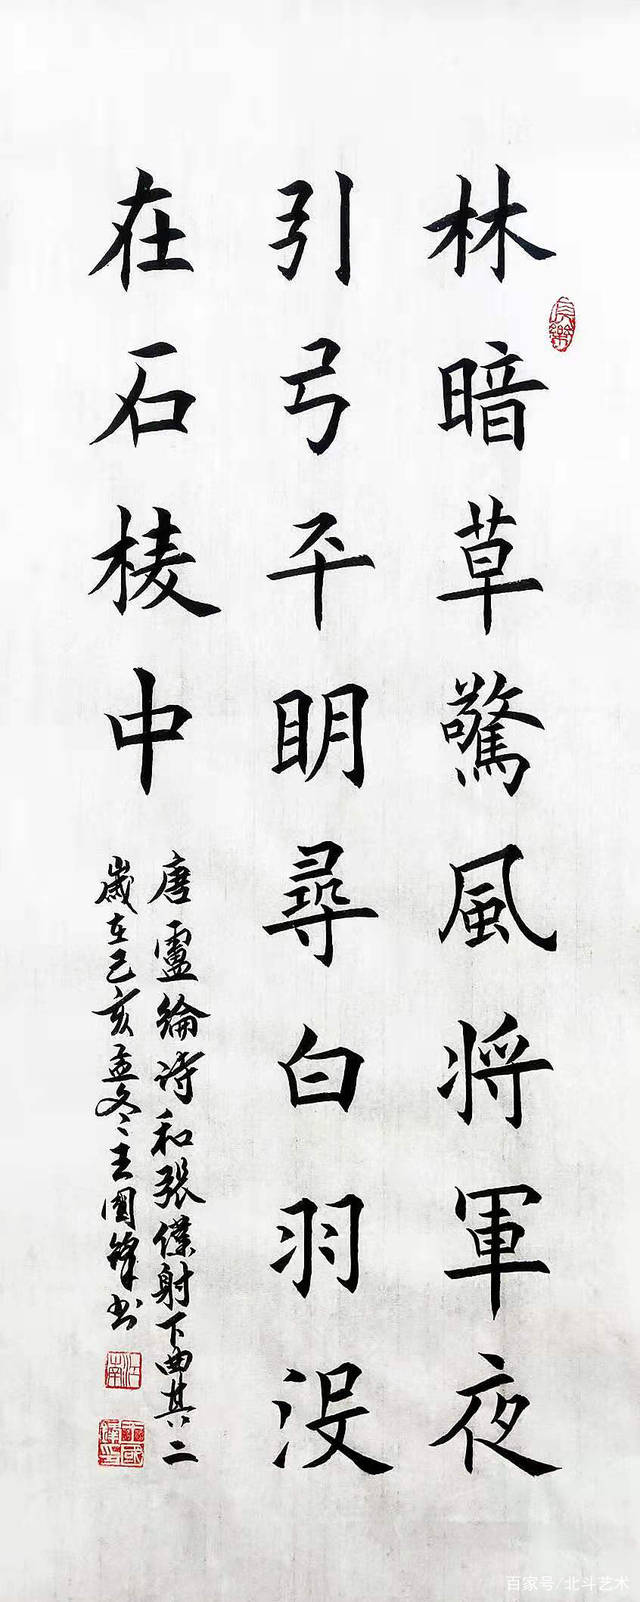 林暗草驚風将軍夜
引弓平明尋白羽没
在石棱中
唐盧綸诗和張僕射下曲其二
歲在己亥孟冬王國鋒书
百家号/北斗艺术